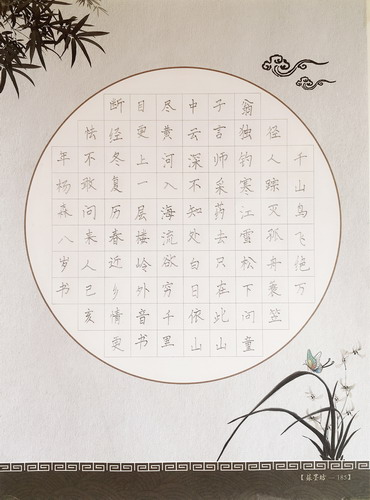 千山鸟飞绝万
径人踪灭孤舟蓑笠
翁独钓寒江雪松下问童
子言师采药去只在此山
中云深不知处白日依山
尽黄河入海流欲穷千里
目更上一层楼岭外音书
断经冬复历春近乡情更
怯不敢问来人己亥
年杨森八岁书
墨坊 — 185】